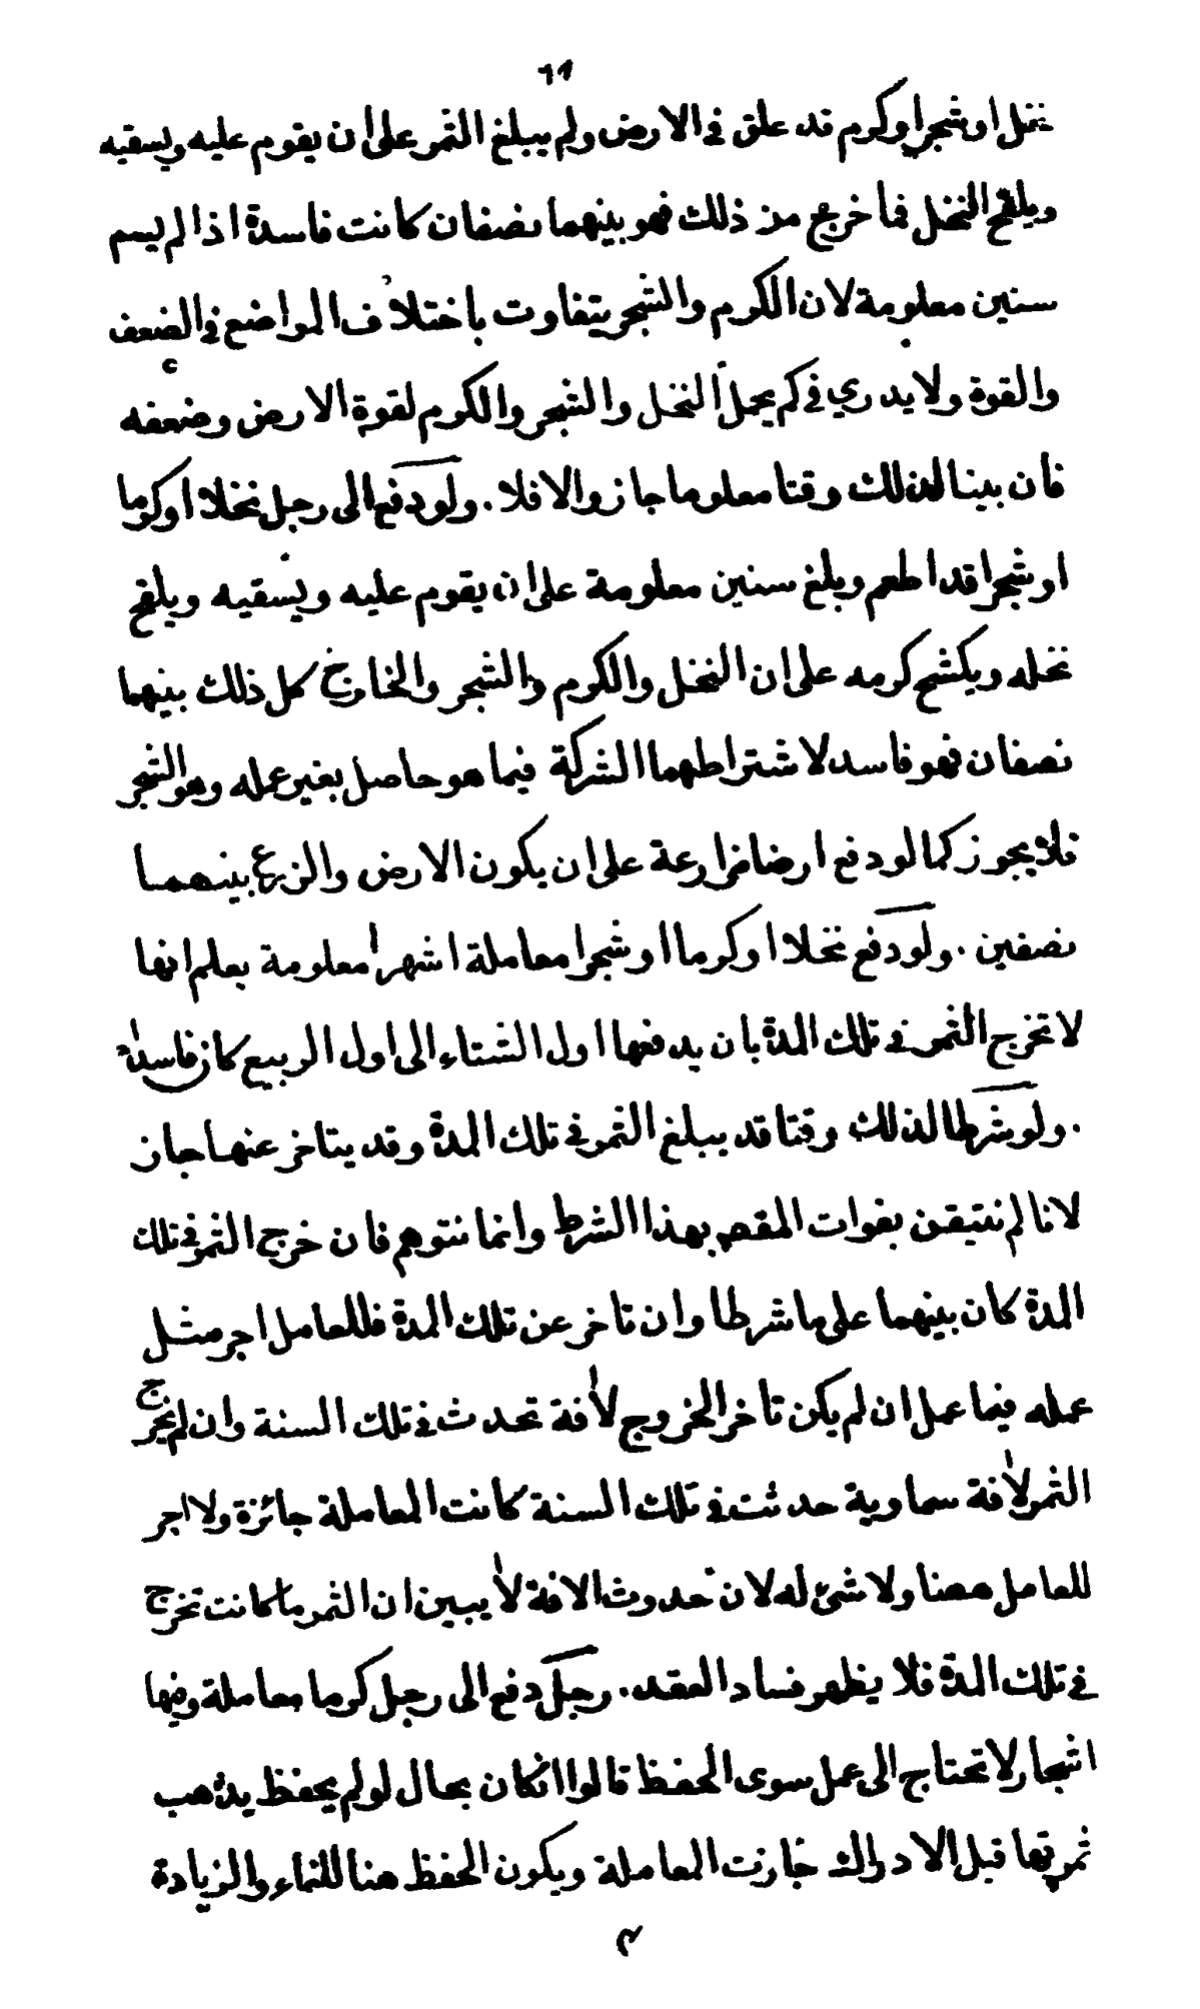 ٦٩
نخل او شجر او كرم قد علق في الارض ولم يبلغ الثمر على ان يقوم عليه ويسقيه
ويلقح النخل فما خرج من ذلك فهو بينهما نصفان كانت فاسدة اذا لم يسم
سنين معلومة لان الكرم والشجر يتفاوت باختلاف المواضع في الضعف
والقوة ولا يدري في كم يحمل النخل والشجر والكرم لقوة الارض وضعفه
فان بينا لذلك وقتا معلوما جاز والا فلا . ولو دفع الى رجل نخلا او كرما
او شجرا قد اطعم وبلغ سنين معلومة على ان يقوم عليه ويسقيه ويلقح
نخله ويكشح كرمه على ان النخل والكرم والشجر والخارج كل ذلك بينهما
نصفان فهو فاسد لاشتراطهما الشركة فيما هو حاصل بغير عمله وهو الشجر
فلا يجوز كما لو دفع ارضا مزارعة على ان يكون الارض والزرع بينهما
نصفين . ولو دفع نخلا او كرما او شجرا معاملة اشهرا معلومة يعلم انها
لا تخرج الثمر في تلك المدة بان يدفعها اول الشتاء الى اول الربيع كان فاسدا
. ولو شرطا لذلك وقتا قد يبلغ الثمر في تلك المدة وقد يتاخر عنها جاز
لانا لم نتيقن بفوات المقصـ بهذا الشرط وانما نتوهم فان خرج الثمر في تلك
المدة كان بينهما على ما شرطا وان تاخر عن تلك المدة فللعامل اجر مثل
عمله فيما عمل ان لم يكن تاخر الخروج لآفة تحدث في تلك السنة وان لم يخرج
الثمر لآفة سماوية حدثت في تلك السنة كانت المعاملة جائزة ولا اجر
للعامل ههنا ولا شئ له لان حدوث الافة لا يبين ان الثمر ما كانت تخرج
في تلك المدة فلا يظهر فساد العقد . رجل دفع الى رجل كرما معاملة وفيها
اشجار لا تحتاج الى عمل سوى الحفظ قالوا ان كان بحال لو لم يحفظ يذهب
ثمرتها قبل الادراك جازت المعاملة ويكون الحفظ هنا للنماء والزيادة